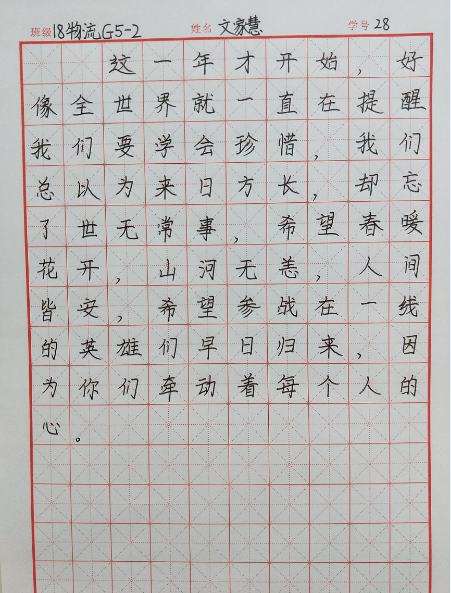 班级 18物流G5-2 姓名 文家慧 学号 28
这一年才开始，好
像全世界就一直在提醒
我们要学会珍惜，我们
总以为来日方长，却忘
了世无常事，希望春暖
花开，山河无恙，人间
皆安，希望参战在一线
的英雄们早日归来，因
为你们牵动着每个人的
心。